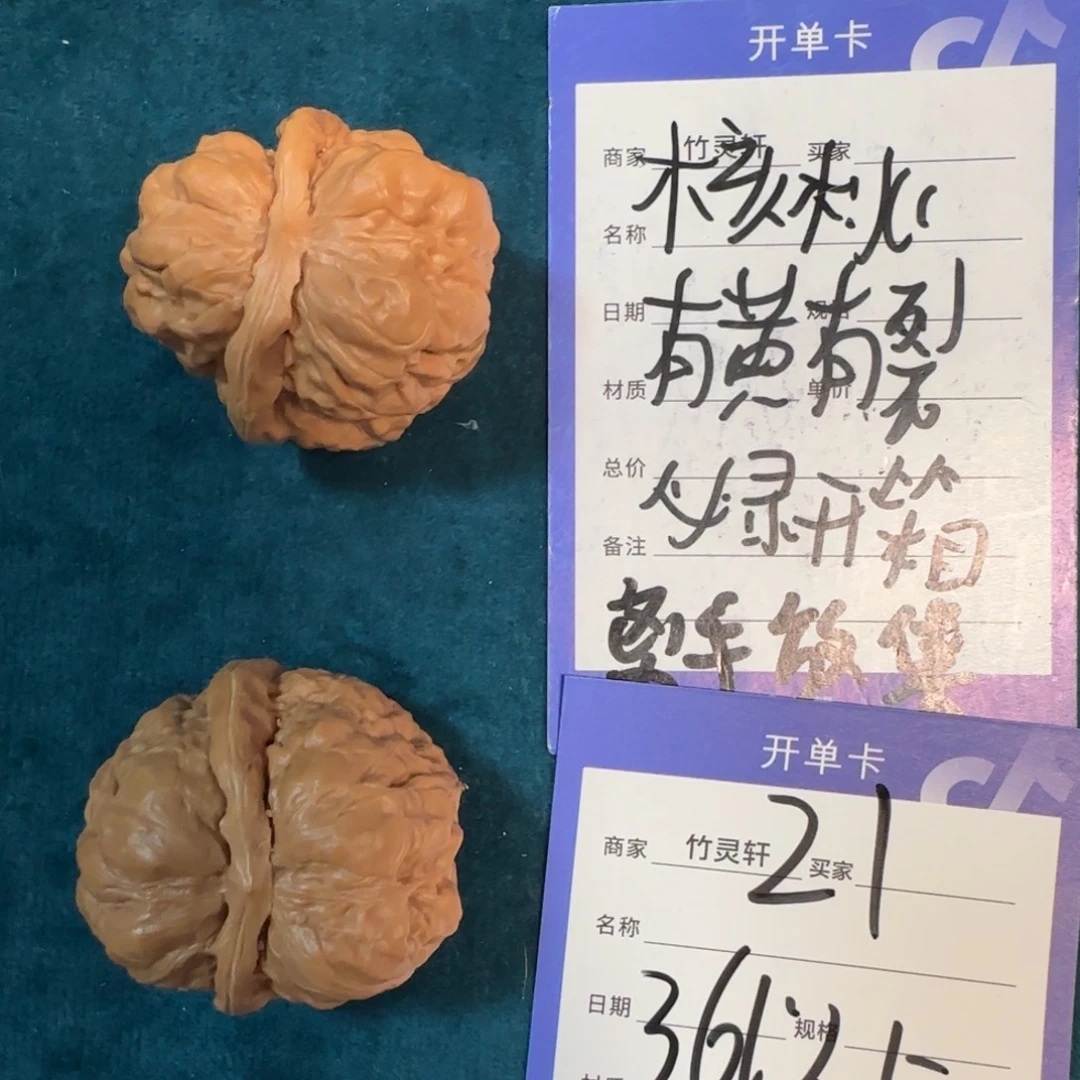 开单卡
商家 竹灵轩 买家
核桃
名称
日期 规格
有黄有裂
材质 单价
总价
必绿开箱
备注
牵手
开单卡
21
商家 竹灵轩 买家
名称
日期 规格
36以上